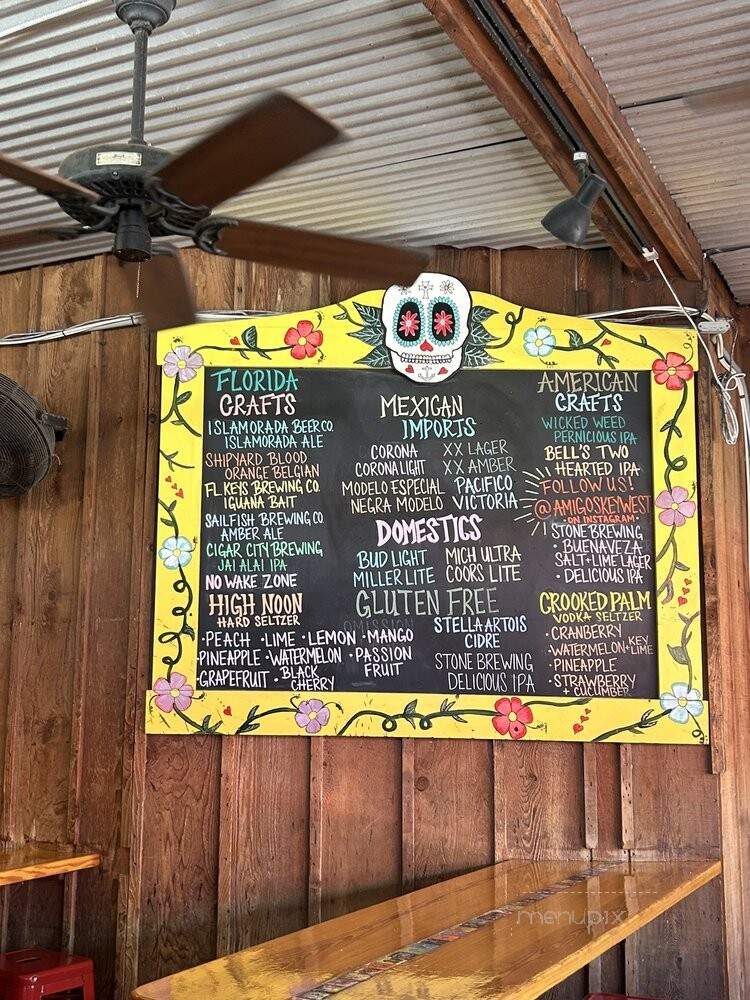 FLORIDA
CRAFTS
ISLAMORADA BEER CO.
ISLAMORADA ALE
SHIPYARD BLOOD
ORANGE BELGIAN
FL KEYS BREWING CO.
IGUANA BAIT
SAILFISH BREWING CO.
AMBER ALE
CIGAR CITY BREWING
JAI ALAI IPA
NO WAKE ZONE
HIGH NOON
HARD SELTZER
• PEACH • LIME • LEMON • MANGO
• PINEAPPLE • WATERMELON • PASSION
FRUIT
• GRAPEFRUIT • BLACK
CHERRY
MEXICAN
IMPORTS
CORONA
CORONA LIGHT
MODELO ESPECIAL
NEGRA MODELO
XX LAGER
XX AMBER
PACIFICO
VICTORIA
DOMESTICS
BUD LIGHT
MILLER LITE
MICH ULTRA
COORS LITE
GLUTEN FREE
OMISSION
STELLA ARTOIS
CIDRE
STONE BREWING
DELICIOUS IPA
AMERICAN
CRAFTS
WICKED WEED
PERNICIOUS IPA
BELL'S TWO
HEARTED IPA
FOLLOW US!
@AMIGOSKEYWEST
• ON INSTAGRAM •
STONE BREWING
• BUENAVEZA
SALT + LIME LAGER
• DELICIOUS IPA
CROOKED PALM
VODKA SELTZER
• CRANBERRY
• WATERMELON + KEY
LIME
• PINEAPPLE
• STRAWBERRY
+ CUCUMBER
menupix